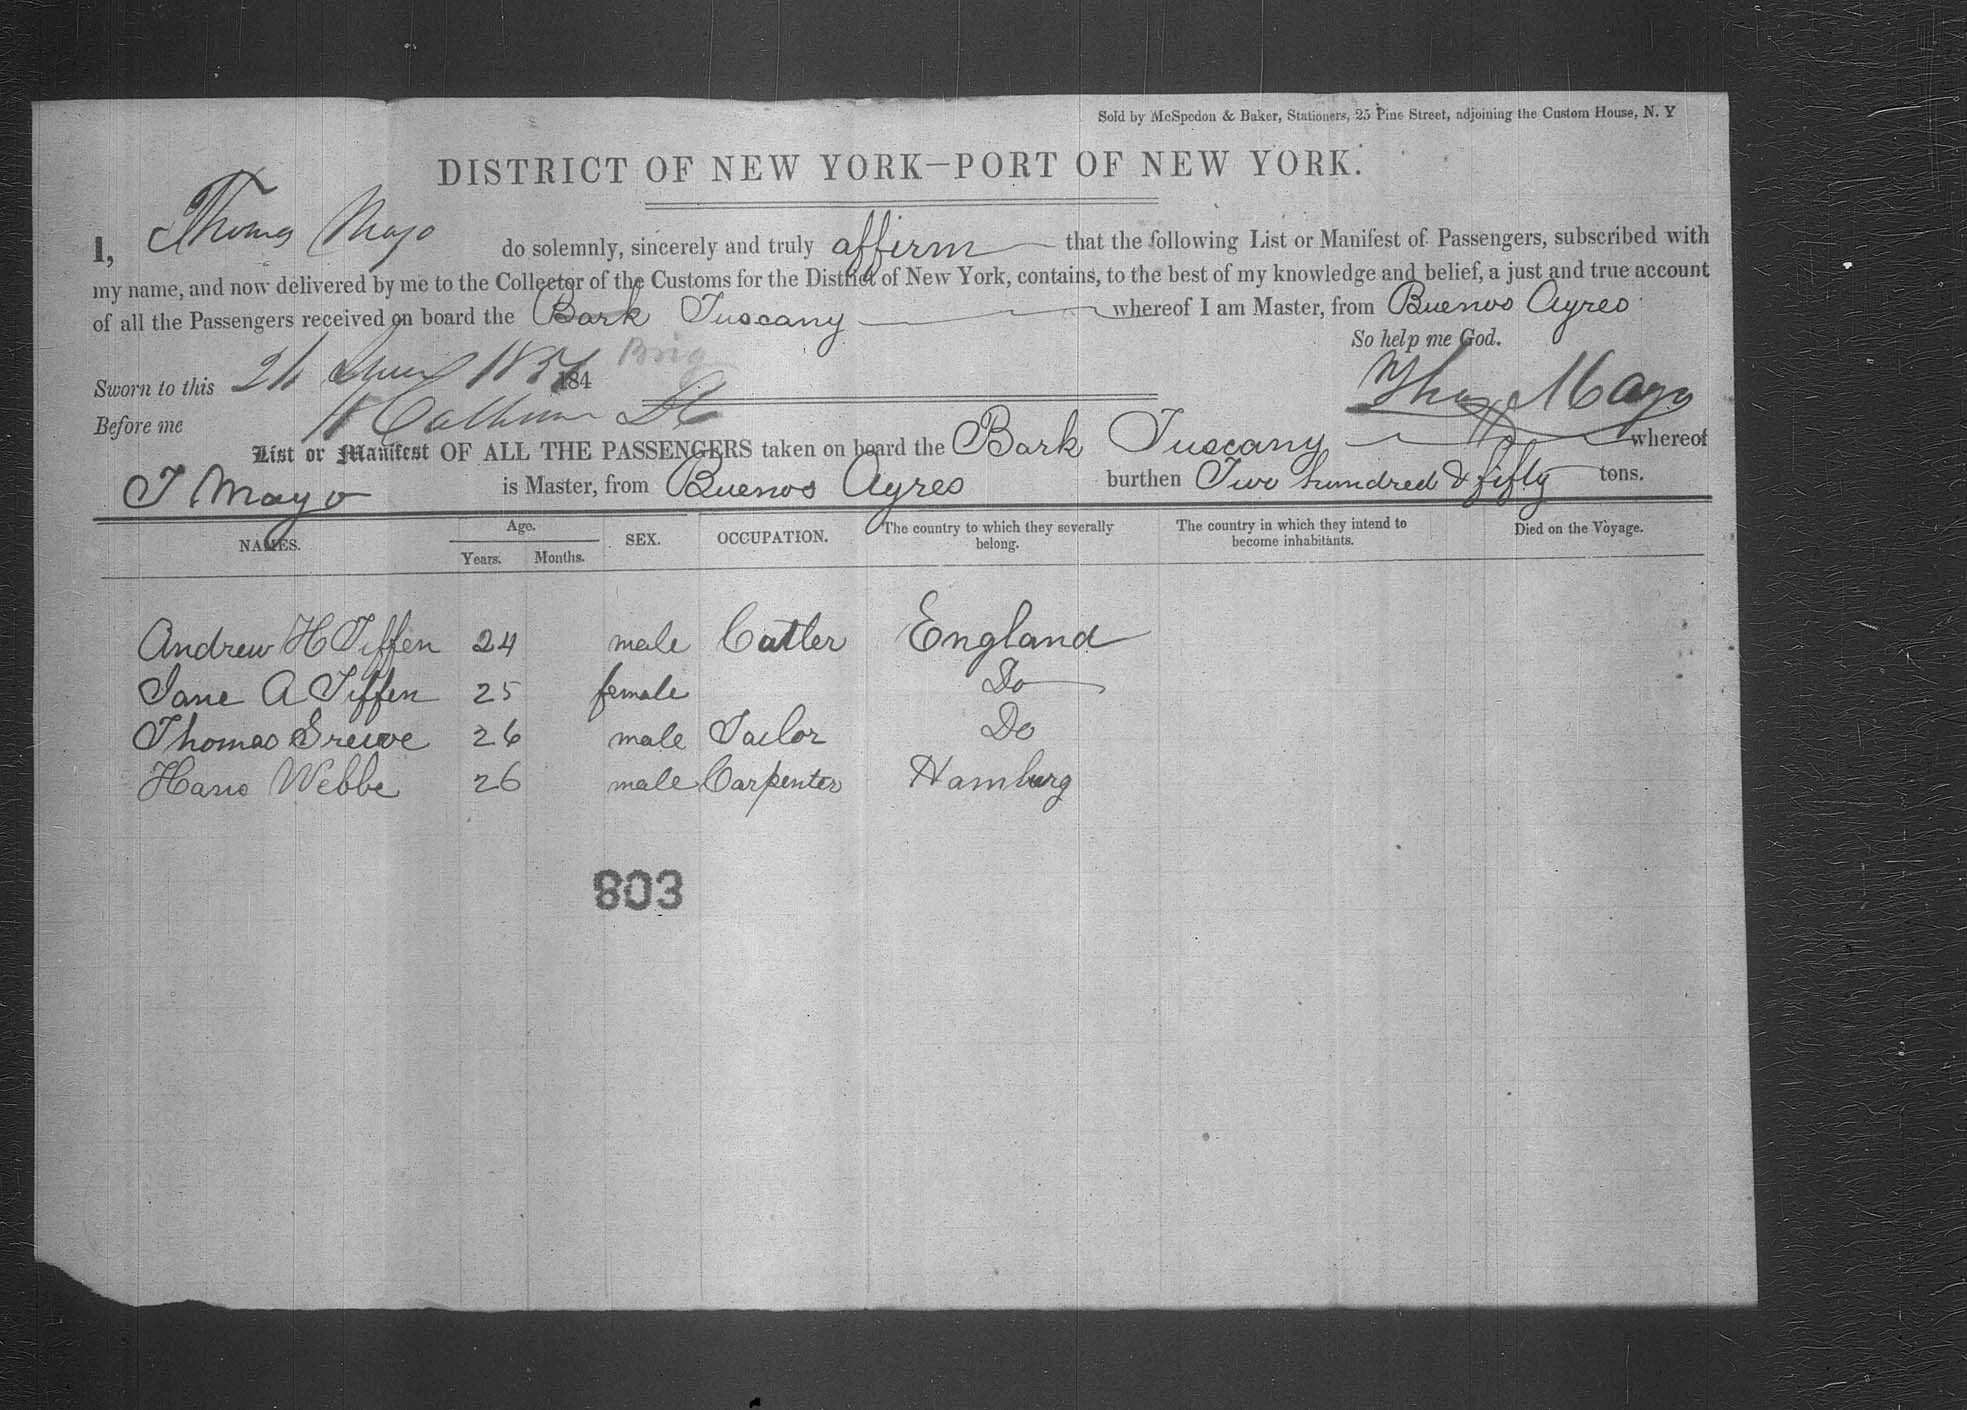 Sold by McSpedon & Baker, Stationers, 25 Pine Street, adjoining the Custom House, N. Y
DISTRICT OF NEW YORK—PORT OF NEW YORK.
I, Thomas Mayo do solemnly, sincerely and truly affirm that the following List or Manifest of Passengers, subscribed with
my name, and now delivered by me to the Collector of the Customs for the District of New York, contains, to the best of my knowledge and belief, a just and true account
of all the Passengers received on board the Bark Tuscany whereof I am Master, from Buenos Ayres
So help me God.
Brig
Sworn to this 184
Thos Mayo
Before me Calhoun
List or Manifest OF ALL THE PASSENGERS taken on board the Bark Tuscany whereof
T Mayo is Master, from Buenos Ayres burthen Two hundred & fifty tons.
NAMES. Age. Years. Months. SEX. OCCUPATION. The country to which they severally belong. The country in which they intend to become inhabitants. Died on the Voyage.
Andrew H Tiffen 24 male Catler England
Jane A Tiffen 25 female Do
Thomas 26 male Tailor Do
Hans Webbe 26 male Carpenter Hamburg
803